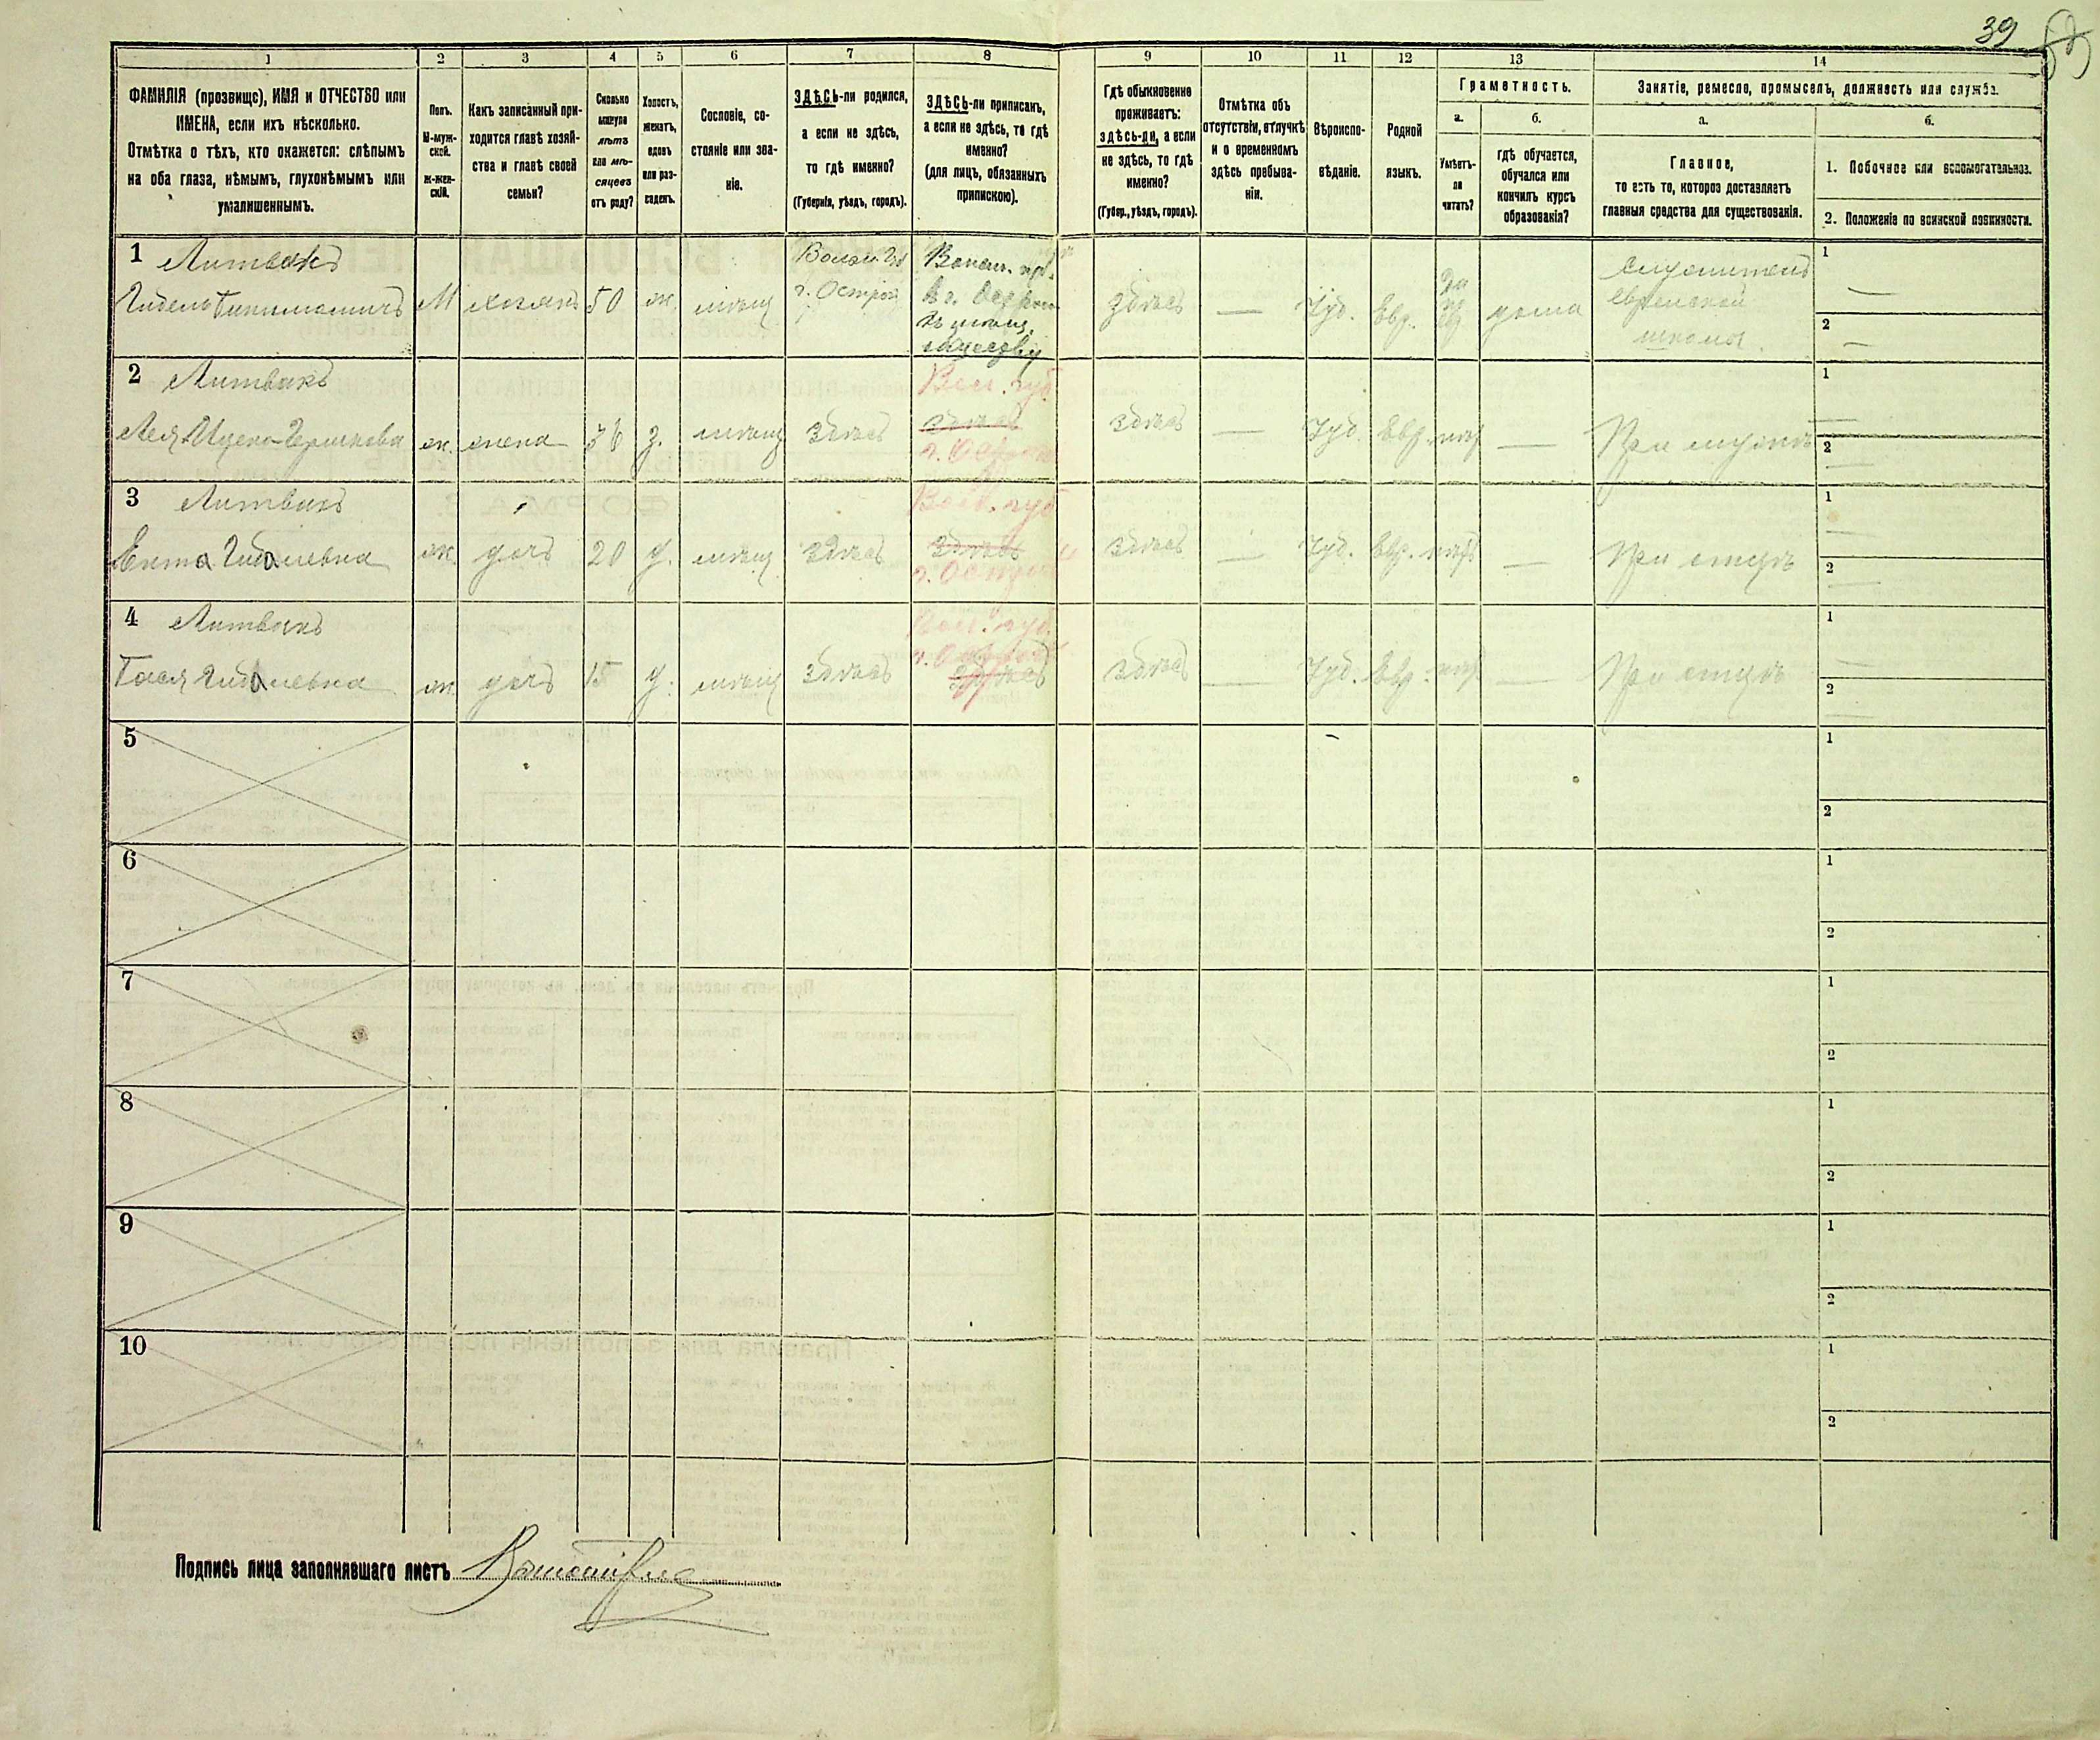 39
1
2
3
4
5
6
7
8
9
10
11
12
13
14
ФАМИЛІЯ (прозвище), ИМЯ и ОТЧЕСТВО или
ИМЕНА, если ихъ нѣсколько.
Отмѣтка о тѣхъ, кто окажется: слѣпымъ
на оба глаза, нѣмымъ, глухонѣмымъ или
умалишеннымъ.
Полъ.
М-муж-
ской.
ж-жен-
скій.
Какъ записанный при-
ходится главѣ хозяй-
ства и главѣ своей
семьи?
Сколько
минуло
лѣтъ
или мѣ-
сяцевъ
отъ роду?
Холостъ,
женатъ,
вдовъ
или раз-
веденъ.
Сословіе, со-
стояніе или зва-
ніе.
ЗДѢСЬ-ли родился,
а если не здѣсь,
то гдѣ именно?
(Губернія, уѣздъ, городъ).
ЗДѢСЬ-ли приписанъ,
а если не здѣсь, то гдѣ
именно?
(для лицъ, обязанныхъ
припискою).
Гдѣ обыкновенно
проживаетъ:
здѣсь-ли, а если
не здѣсь, то гдѣ
именно?
(Губер., уѣздъ, городъ).
Отмѣтка объ
отсутствіи, отлучкѣ
и о временномъ
здѣсь пребыва-
ніи.
Вѣроиспо-
вѣданіе.
Родной
языкъ.
Грамотность.
а.
Умѣетъ-
ли
читать?
б.
гдѣ обучается,
обучался или
кончилъ курсъ
образованія?
Занятіе, ремесло, промыселъ, должность или служба.
а.
Главное,
то есть то, которое доставляетъ
главныя средства для существованія.
б.
1. Побочное или вспомогательное.
2. Положеніе по воинской повинности.
1 Литвакъ
М
хозяинъ
50
ж.
мѣщ
Волын. Губ
г. Острог
Волын. губ.
въ г. Острог
къ мѣщ.
обществу
здѣсь
—
Іуд.
Евр.
да
дома
служитель
еврейской
школы.
1
—
2
—
2 Литвакъ
Лея Ицко-Гершкова
ж.
жена
36
з.
мѣщ
здѣсь
Вол. губ.
здѣсь
г. Острог
здѣсь
—
Іуд.
Евр.
нѣт
—
При мужѣ
1
2
3 Литвакъ
Ента Гиделевна
ж.
дочь
20
д.
мѣщ
здѣсь
Вол. губ
здѣсь
г. Острог
здѣсь
—
Іуд.
Евр.
нѣт
—
При отцѣ
1
2
4 Литвакъ
Бася Гиделевна
ж.
дочь
15
д.
мѣщ
здѣсь
Вол. губ.
г. Острог
здѣсь
здѣсь
—
Іуд.
Евр.
нѣт
—
При отцѣ
1
2
5
1
2
6
1
2
7
1
2
8
1
2
9
1
2
10
1
2
Подпись лица заполнявшаго листъ